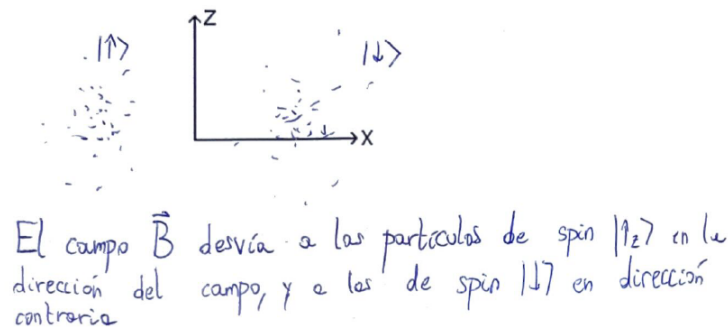 Z
|↑⟩
|↓⟩
X
El campo B⃗ desvía a las partículas de spin |↑z⟩ en la
dirección del campo, y a las de spin |↓⟩ en dirección
contraria